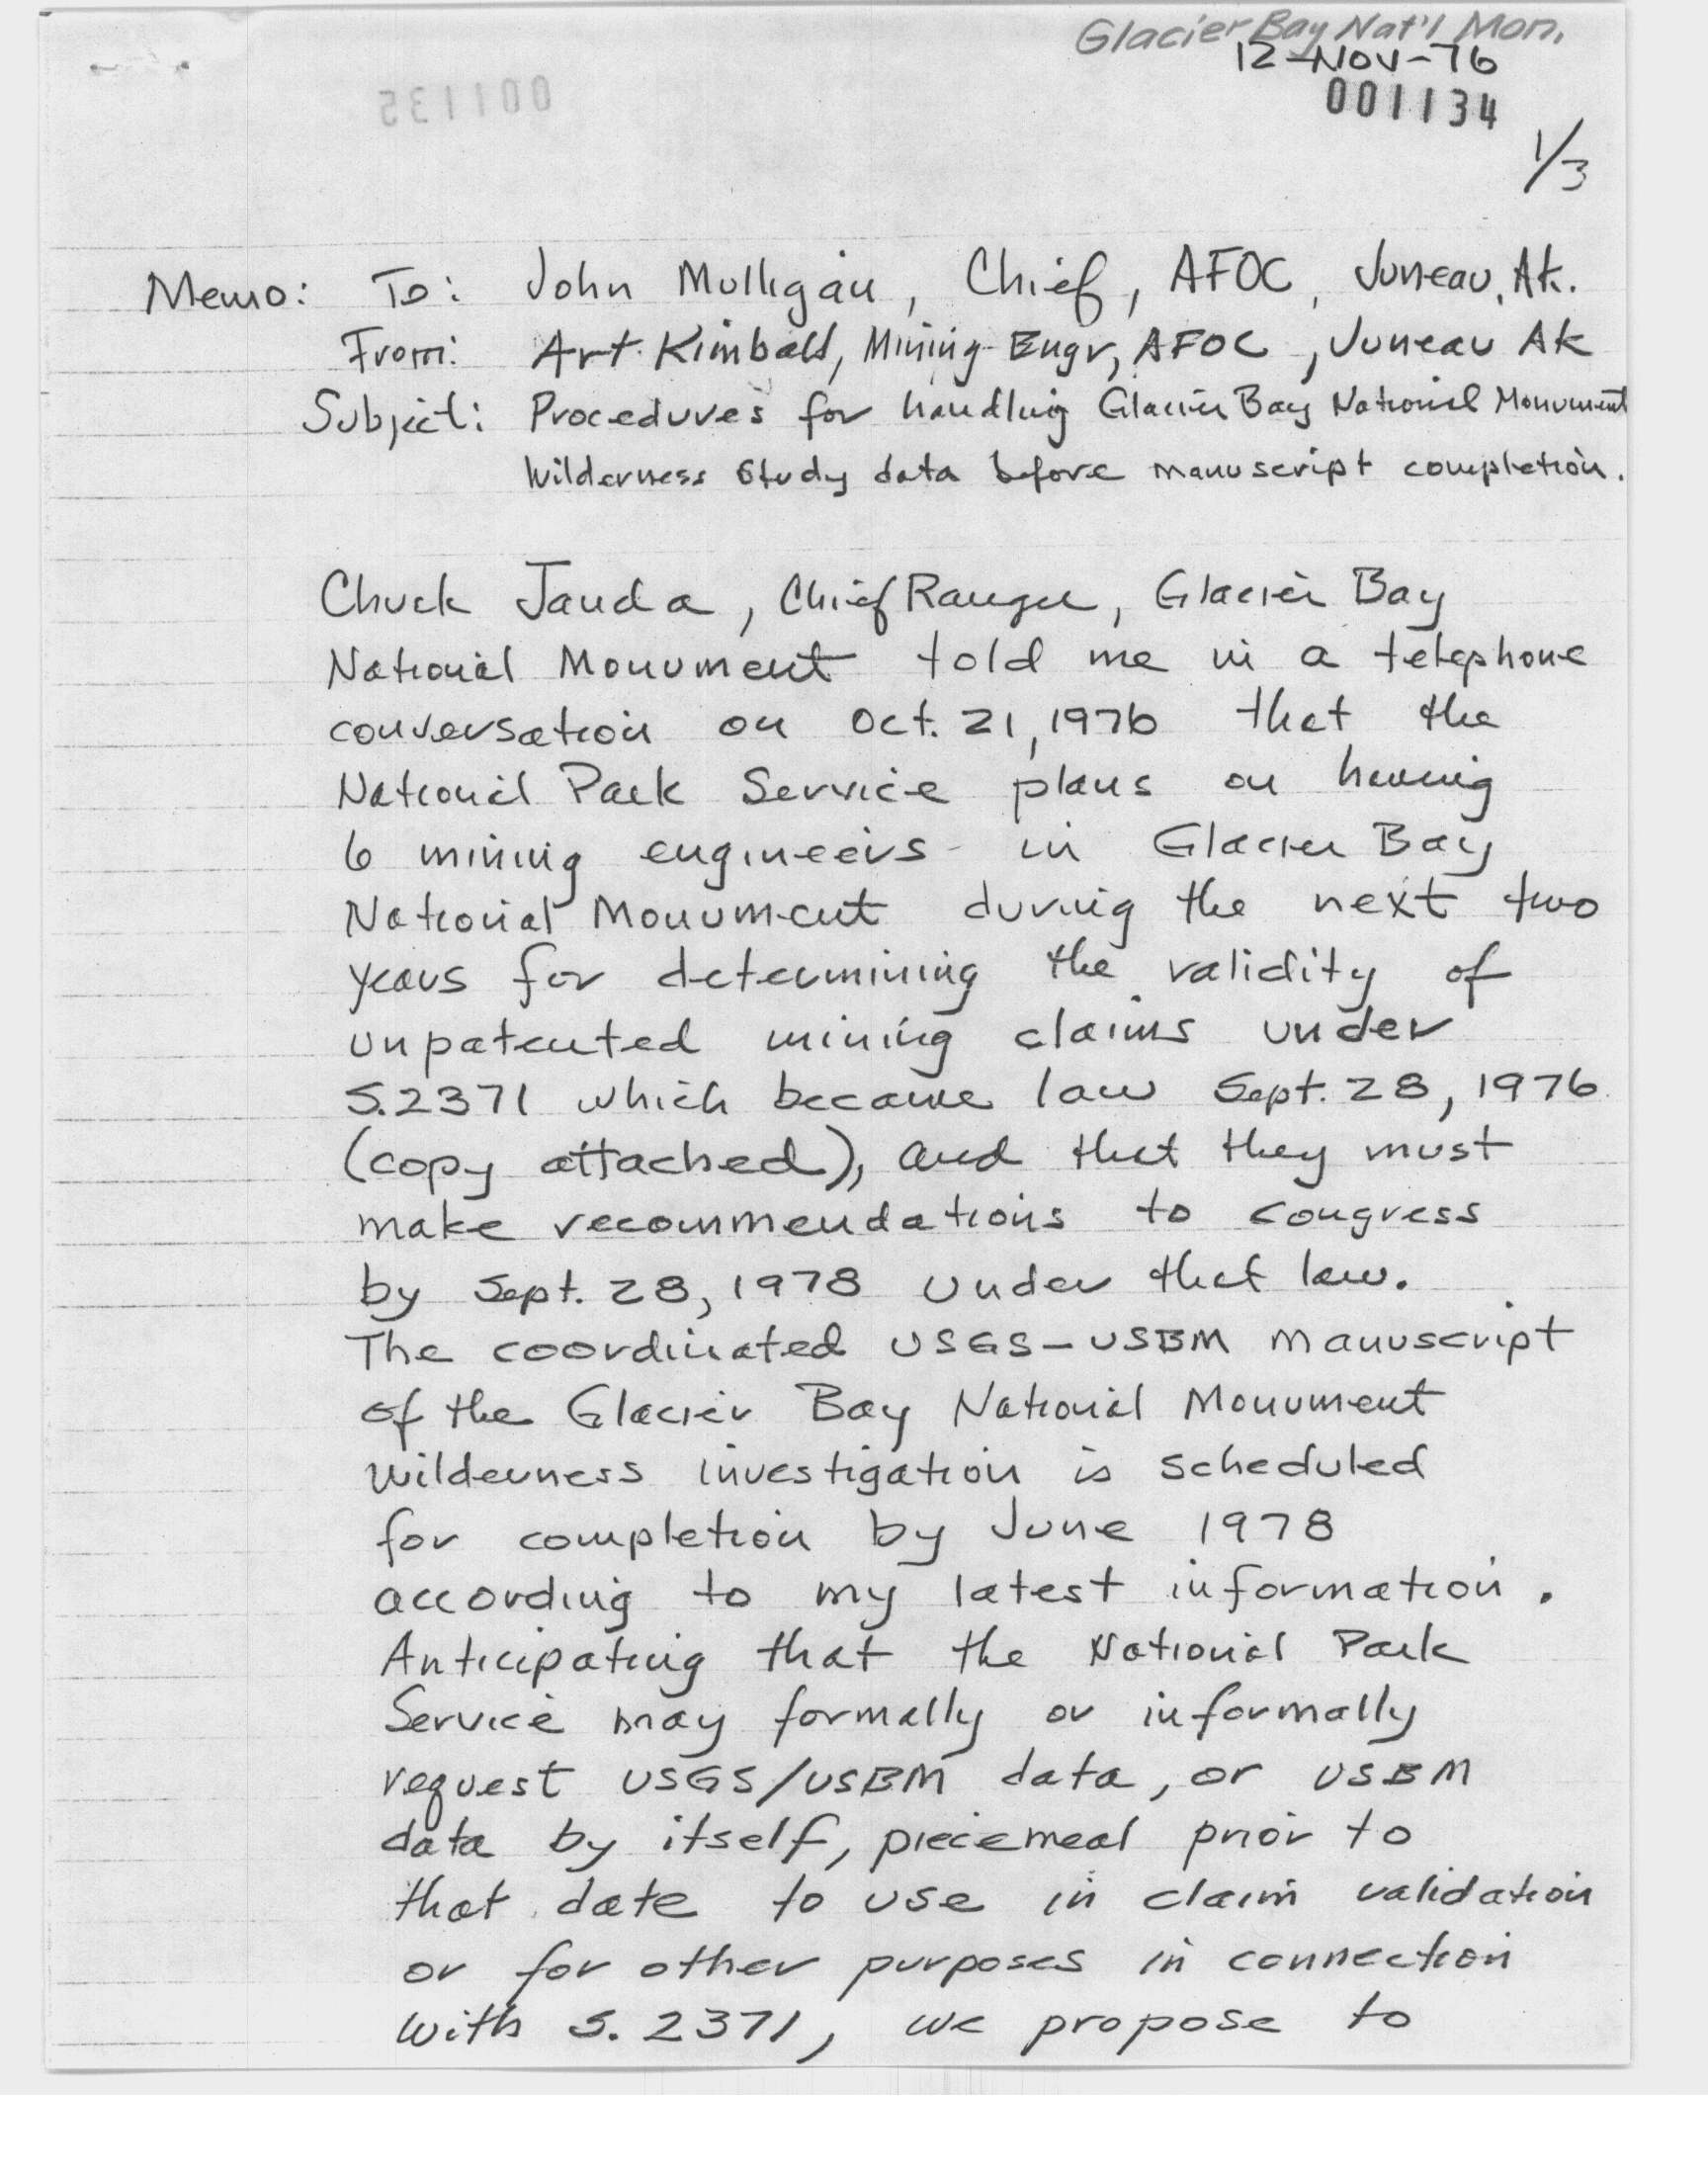 Glacier Bay Nat'l Mon.
12-Nov-76
001134
001135
1/3
Memo: To: John Mulligan, Chief, AFOC, Juneau, Ak.
From: Art Kimball, Mining Engr, AFOC, Juneau Ak
Subject: Procedures for handling Glacier Bay National Monument
Wilderness Study data before manuscript completion.
Chuck Janda, Chief Ranger, Glacier Bay
National Monument told me in a telephone
conversation on Oct. 21, 1976 that the
National Park Service plans on having
6 mining engineers in Glacier Bay
National Monument during the next two
years for determining the validity of
unpatented mining claims under
S.2371 which became law Sept. 28, 1976
(copy attached), and that they must
make recommendations to congress
by Sept. 28, 1978 under that law.
The coordinated USGS-USBM manuscript
of the Glacier Bay National Monument
wilderness investigation is scheduled
for completion by June 1978
according to my latest information.
Anticipating that the National Park
Service may formally or informally
request USGS/USBM data, or USBM
data by itself, piecemeal prior to
that date to use in claim validation
or for other purposes in connection
with S. 2371, we propose to